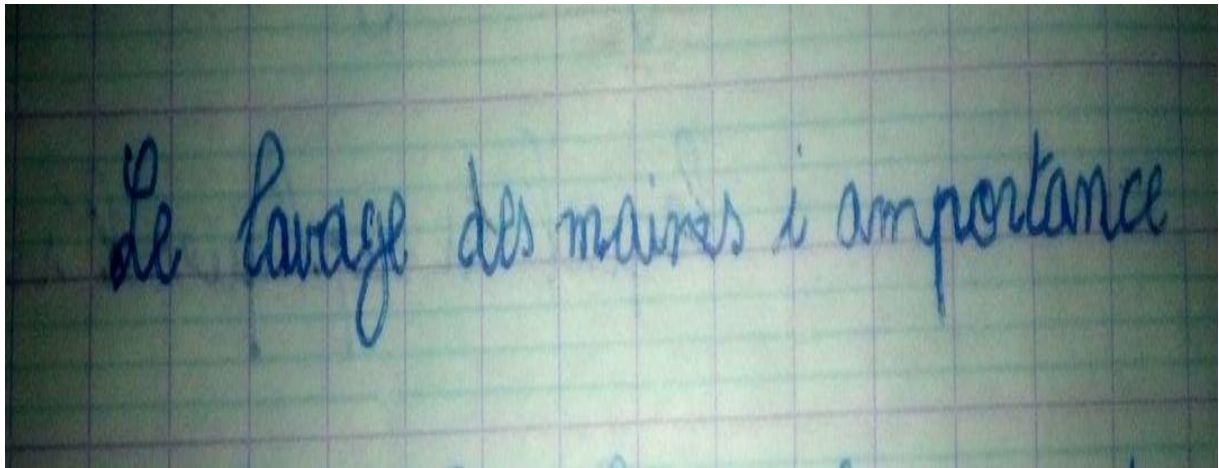 Le lavage des mains i amportance